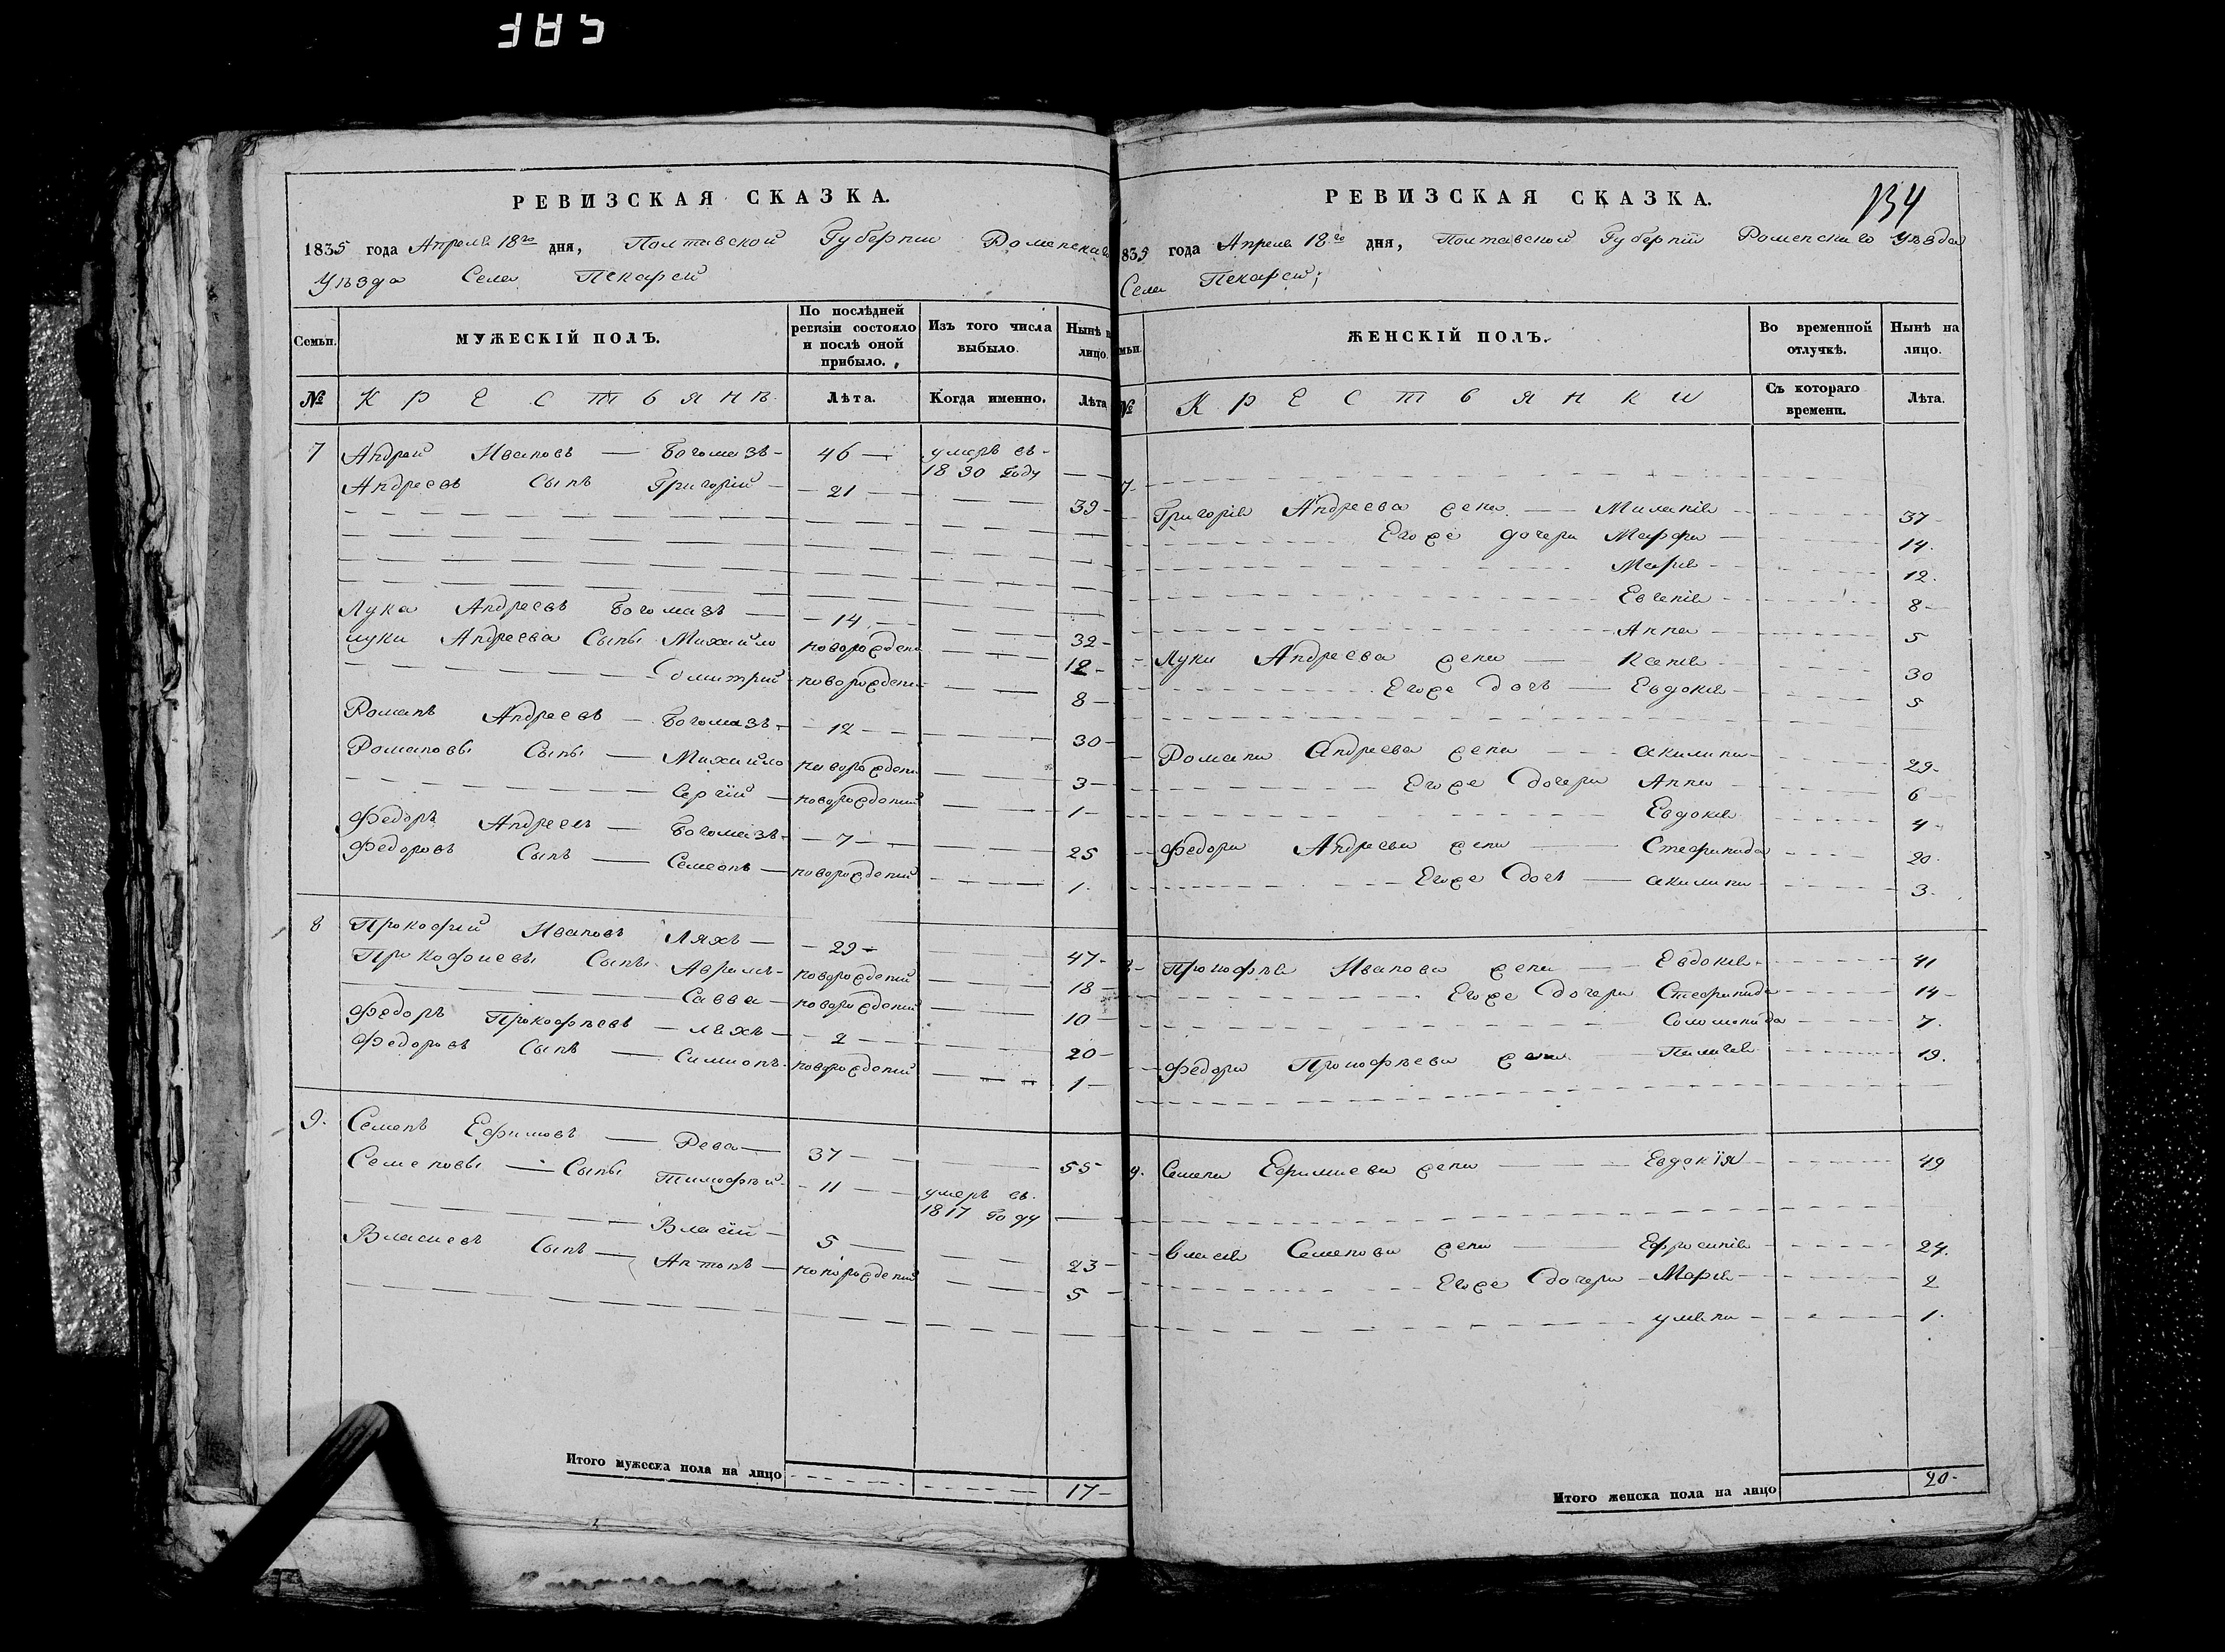 385
РЕВИЗСКАЯ СКАЗКА.
1835 года Апреля 18го дня, Полтавской Губернии Роменскаго
Уѣзда Села Пекарей
Семьи. МУЖЕСКІЙ ПОЛЪ. По послѣдней ревизіи состояло и послѣ оной прибыло. Изъ того числа выбыло. Нынѣ на лицо.
№ Крестьянъ Лѣта. Когда именно. Лѣта
7 Андрей Ивановъ — Богомазъ — 46 — умеръ въ
1830 году
Андреевъ Сынъ Григорій — 21 — 39
Лука Андреевъ Богомазъ — 14 — 32
Луки Андреева Сыны Михайло новорожденъ 12
Дмитрий новорожденъ 8
Романъ Андреевъ — Богомазъ — 12 — 30
Романовы Сыны — Михайло новорожден 3
Сергій — новорождений 1
Федоръ Андреевъ — Богомазъ — 7 — 25
Федоровъ Сынъ — Семеонъ — новорождений 1
8 Прокофий Ивановъ Ляхъ — 29 — 47
Прокофиевы Сыны Аврамъ — новорожденний 18
Савва — новорожденний 10
Федоръ Прокофѣевъ — Ляхъ — 2 — 20
Федоровъ Сынъ — Симионъ новорожденний 1
9. Семенъ Ефимовъ — Рева — 37 — 55
Семеновы — Сыны Тимофѣй — 11 — умеръ въ
1817 Году
Власій — 5 — 23
Власиевъ Сынъ — Антонъ — новорожденний 5
Итого мужеска пола на лицо 17
РЕВИЗСКАЯ СКАЗКА. 134
835 года Апреля 18го дня, Полтавской Губерніи Роменскаго Уѣзда
Села Пекарей;
мьи. ЖЕНСКІЙ ПОЛЪ. Во временной отлучкѣ. Нынѣ на лицо.
№ Крестьянки Съ котораго времени. Лѣта.
7
Григорія Андреева жена — Миланія 37
Егоже дочери Марфа 14
Марія 12
Евгенія 8
Анна 5
Луки Андреева жена — Ксенія 30
Егоже Дочь — Евдокія 5
Романа Андреева жена — акилина 29
Егоже Дочери Анна 6
Евдокія 4
Федора Андреева жена — Стефанида 20
Егоже Дочь — акилина 3
8 Прокофія Иванова жена — Евдокія 41
Егоже Дочери Стефанида 14
Соломонида 7
Федора Прокофѣева жена — Пелагія 19
9. Семена Ефимиева жена — Евдокія 49
Власія Семенова жена — Ефросинія 24
Егоже Дочери — Марія 2
уляна 1
Итого женска пола на лицо 20